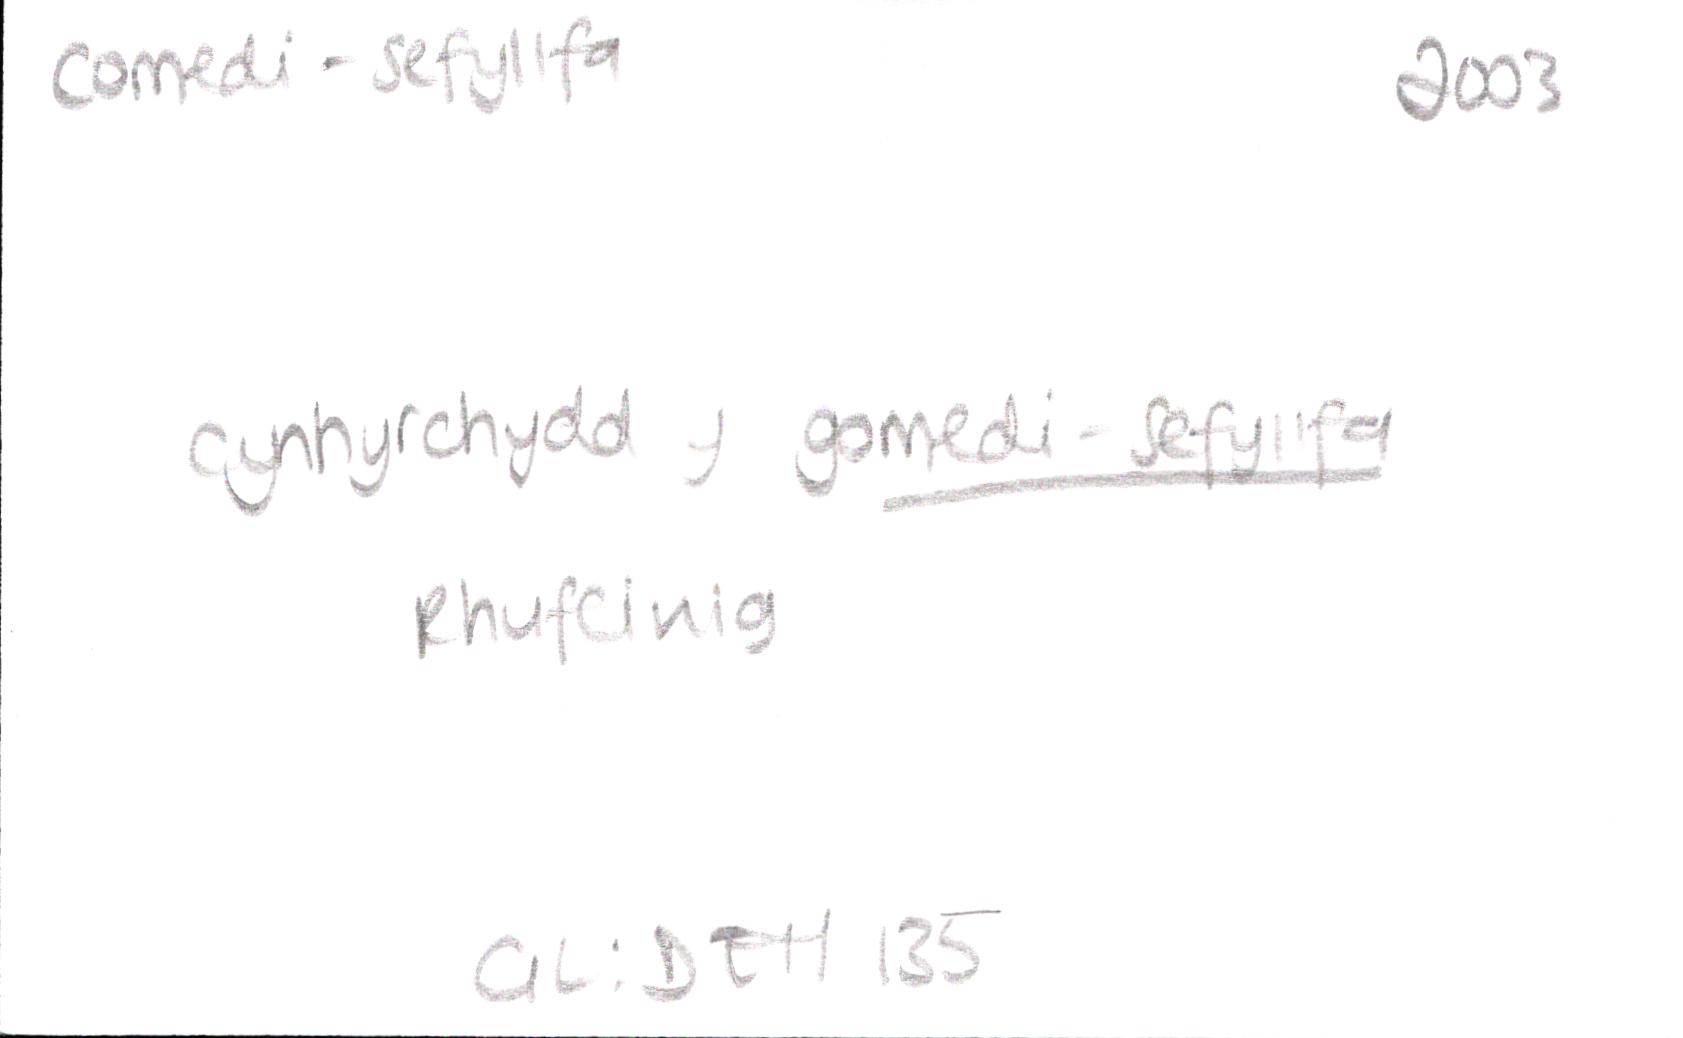 comedi-sefyllfa 2003
cynhyrchydd y gomedi-sefyllfa
Rhufeinig
GL: DTH 135